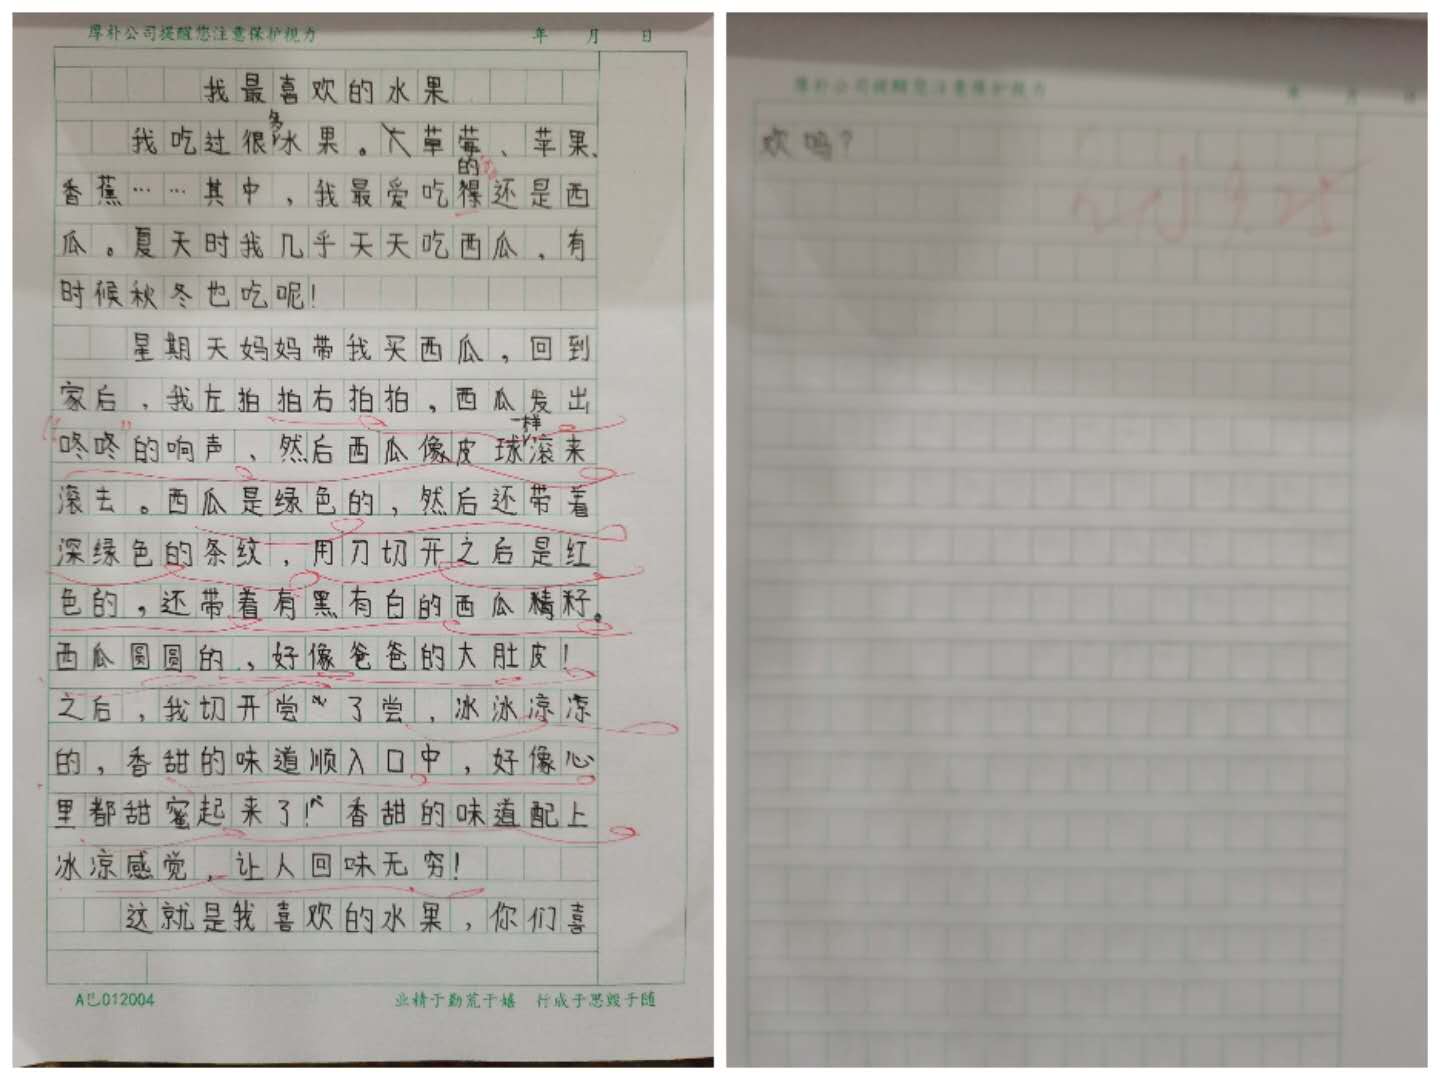 厚朴公司提醒您注意保护视力 年 月 日
我最喜欢的水果
我吃过很多水果。大草莓、苹果、
香蕉……其中，我最爱吃的还是西
瓜。夏天时我几乎天天吃西瓜，有
时候秋冬也吃呢！
星期天妈妈带我买西瓜，回到
家后，我左拍拍右拍拍，西瓜发出
“咚咚”的响声、然后西瓜像皮球一样滚来
滚去。西瓜是绿色的，然后还带着
深绿色的条纹，用刀切开之后是红
色的，还带着有黑有白的西瓜精籽。
西瓜圆圆的，好像爸爸的大肚皮！
之后，我切开尝了尝，冰冰凉凉
的，香甜的味道顺入口中，好像心
里都甜蜜起来了！香甜的味道配上
冰凉感觉，让人回味无穷！
这就是我喜欢的水果，你们喜
A已012004 业精于勤荒于嬉 行成于思毁于随
厚朴公司提醒您注意保护视力 年 月 日
欢吗？